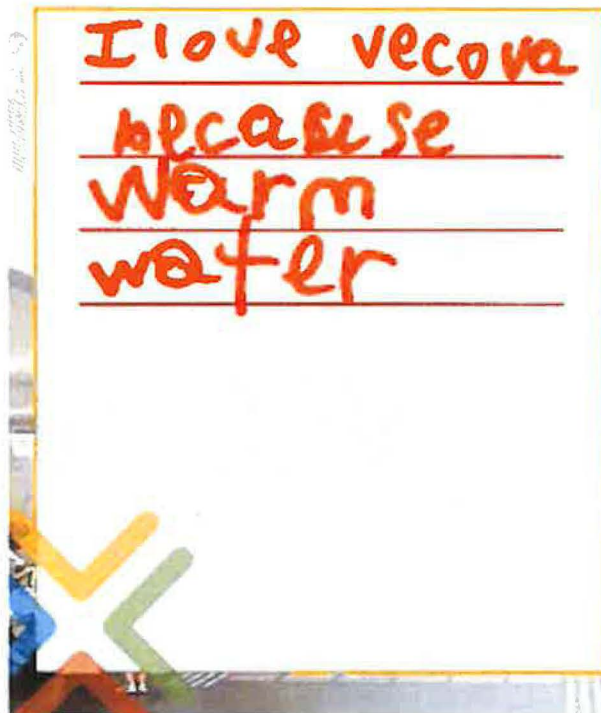 I love vecova
because
warm
water